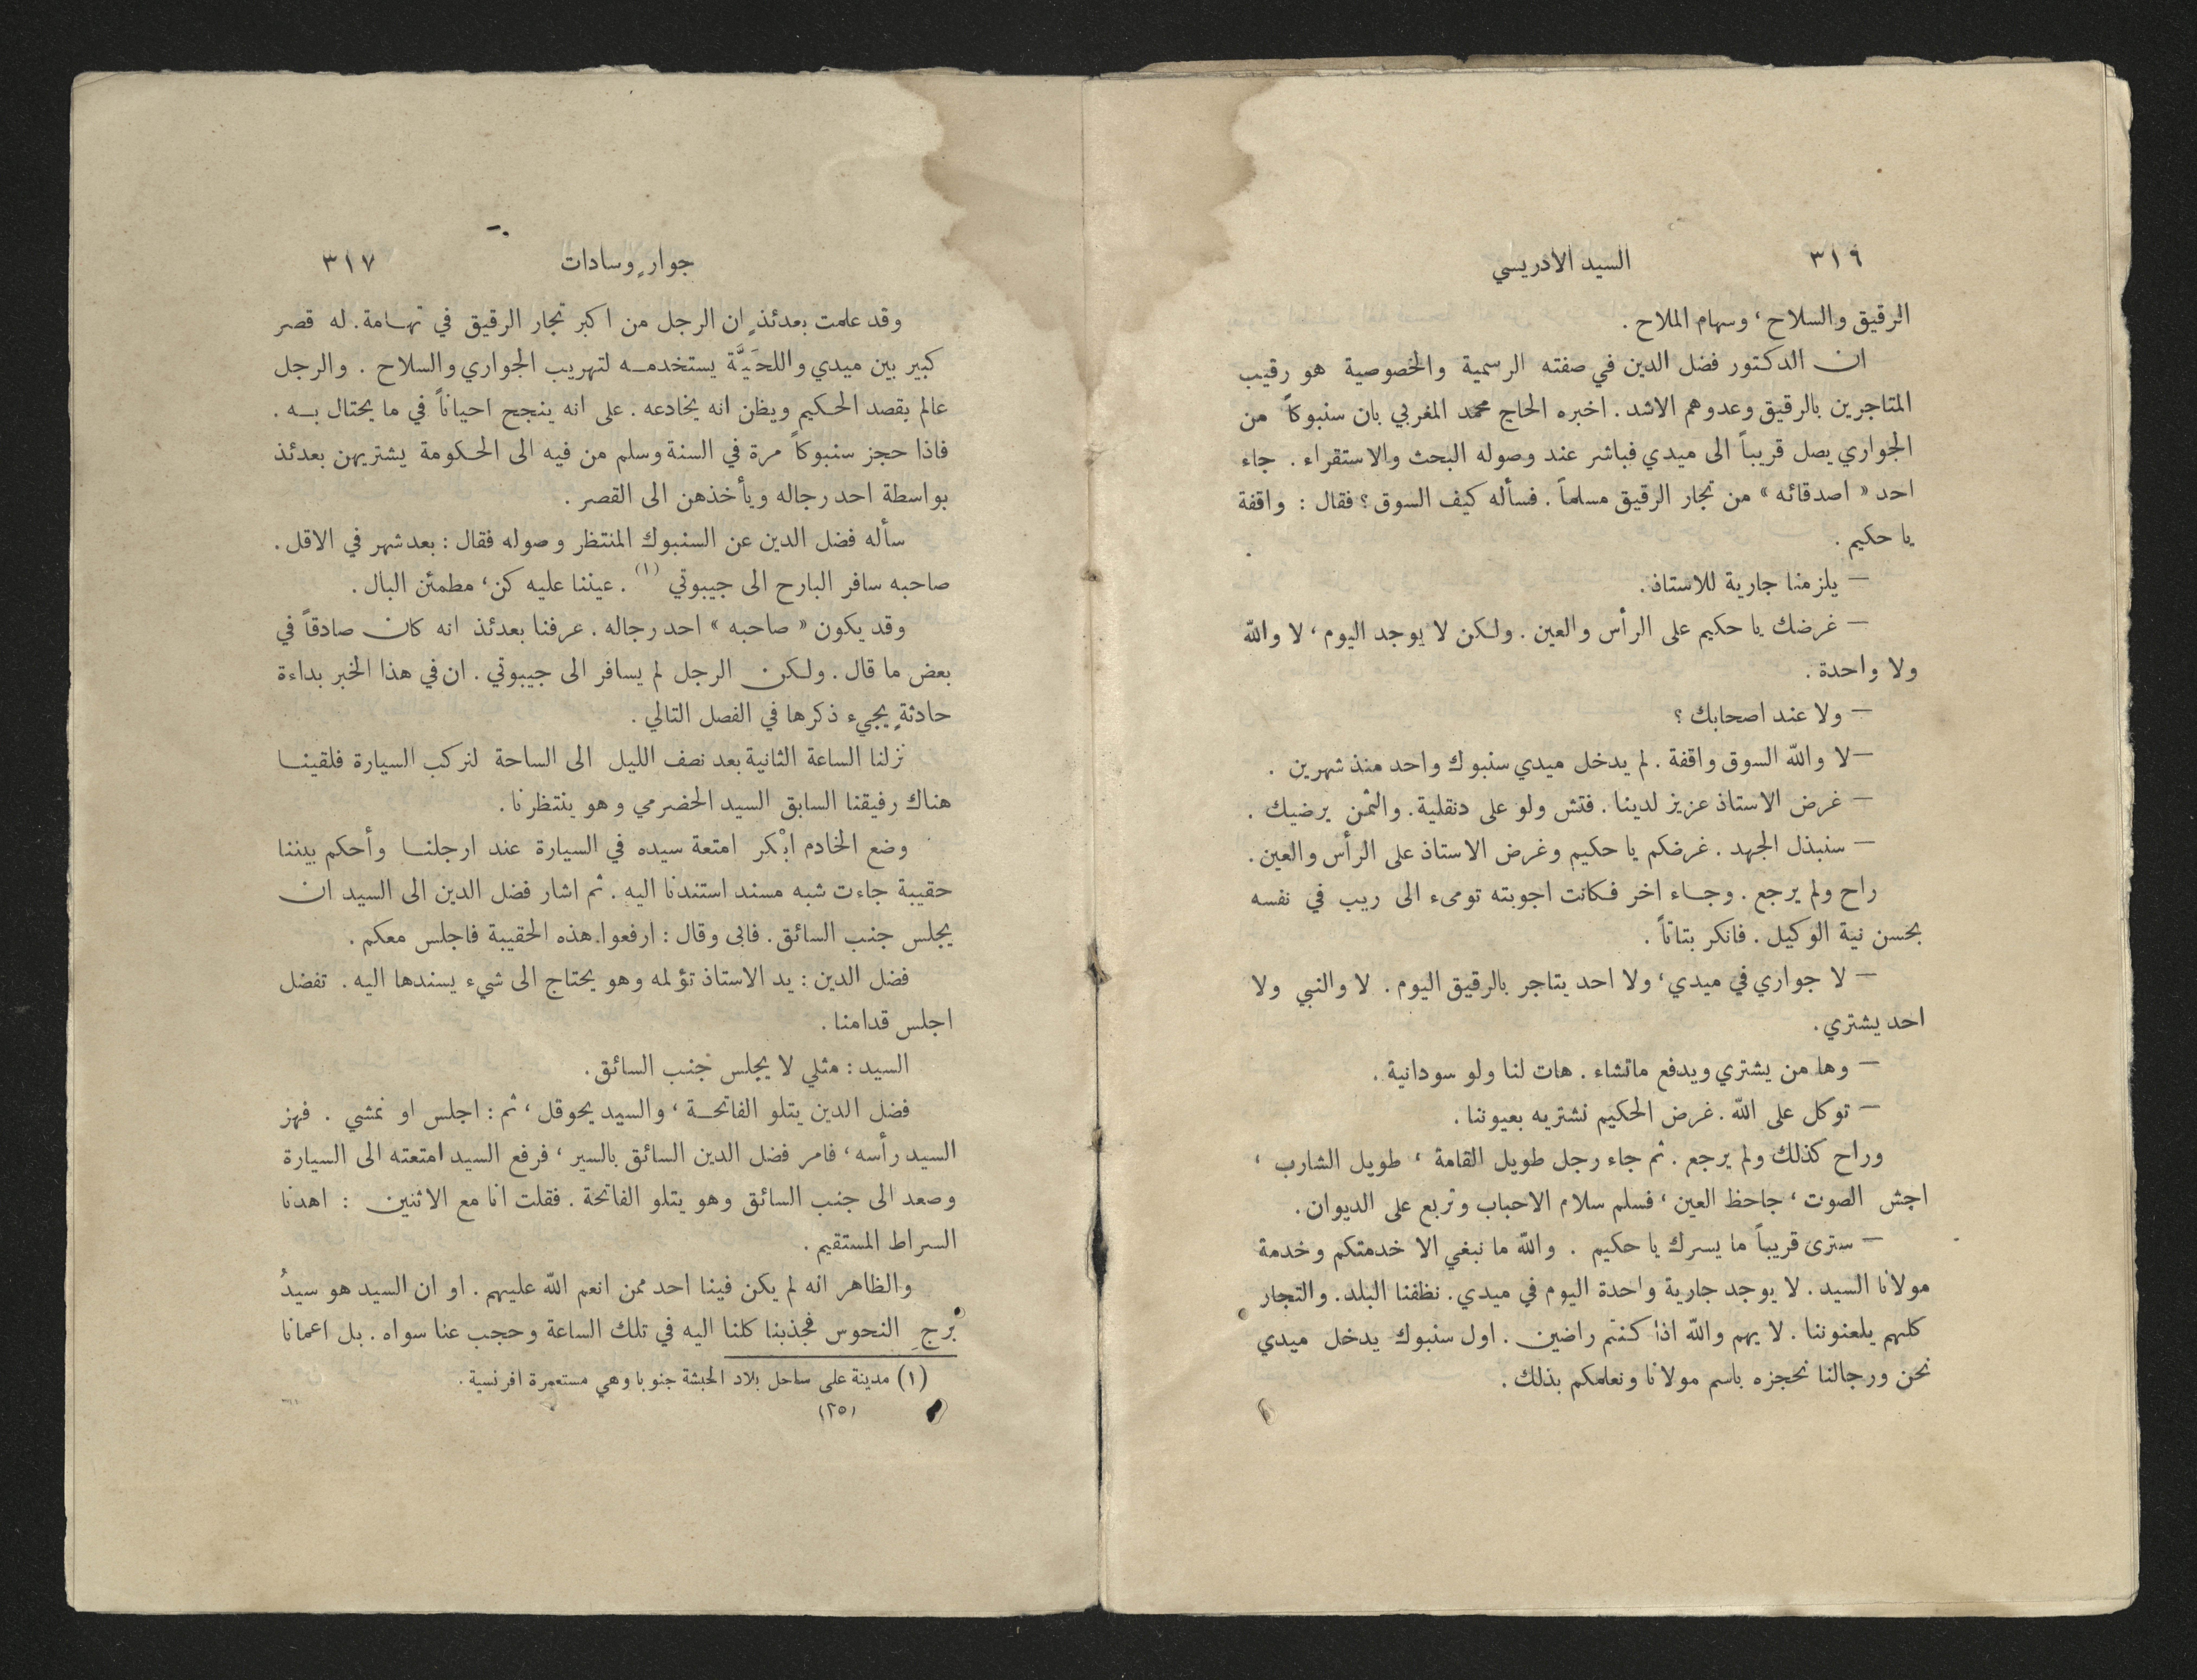 ٣١٦
السيد الادريسي
الرقيق والسلاح، وسهام الملاح .
ان الدكتور فضل الدين في صفته الرسمية والخصوصية هو رقيب
المتاجرين بالرقيق وعدوهم الاشد . اخبره الحاج محمد المغربي بان سنبوكاً من
الجواري يصل قريباً الى ميدي فباشر عند وصوله البحث والاستقراء . جاء
احد « اصدقائه » من تجار الرقيق مسلماً . فسأله كيف السوق ؟ فقال : واقفة
يا حكيم .
— يلزمنا جارية للاستاذ .
— غرضك يا حكيم على الرأس والعين . ولكن لا يوجد اليوم، لا والله
ولا واحدة .
— ولا عند اصحابك ؟
— لا والله السوق واقفة . لم يدخل ميدي سنبوك واحد منذ شهرين .
— غرض الاستاذ عزيز لدينا . فتش ولو على دنقلية. والثمن يرضيك .
— سنبذل الجهد . غرضكم يا حكيم وغرض الاستاذ على الرأس والعين.
راح ولم يرجع . وجاء اخر فكانت اجوبته تومىء الى ريب في نفسه
بحسن نية الوكيل . فانكر بتاتاً .
— لا جواري في ميدي، ولا احد يتاجر بالرقيق اليوم . لا والنبي ولا
احد يشتري .
— وها من يشتري ويدفع ماتشاء . هات لنا ولو سودانية .
— توكل على الله . غرض الحكيم نشتريه بعيوننا .
وراح كذلك ولم يرجع . ثم جاء رجل طويل القامة ، طويل الشارب ،
اجش الصوت ، جاحظ العين ، فسلم سلام الاحباب وتربع على الديوان .
— سترى قريباً ما يسرك يا حكيم . والله ما نبغي الا خدمتكم وخدمة
مولانا السيد . لا يوجد جارية واحدة اليوم في ميدي . نظفنا البلد . والتجار
كلهم يلعنوننا . لا يهم والله اذا كنتم راضين . اول سنبوك يدخل ميدي
نحن ورجالنا نحجزه باسم مولانا ونعلمكم بذلك .
جوارٍ وسادات
٣١٧
وقد علمت بعدئذٍ ان الرجل من اكبر تجار الرقيق في تهامة. له قصر
كبير بين ميدي واللحَيَّة يستخدمه لتهريب الجواري والسلاح . والرجل
عالم بقصد الحكيم ويظن انه يخادعه . على انه ينجح احياناً في ما يحتال به .
فاذا حجز سنبوكاً مرة في السنة وسلم من فيه الى الحكومة يشتريهن بعدئذ
بواسطة احد رجاله ويأخذهن الى القصر .
سأله فضل الدين عن السنبوك المنتظر وصوله فقال : بعد شهر في الاقل .
صاحبه سافر البارح الى جيبوتي (١) . عيننا عليه كن، مطمئن البال .
وقد يكون « صاحبه » احد رجاله . عرفنا بعدئذ انه كان صادقاً في
بعض ما قال . ولكن الرجل لم يسافر الى جيبوتي . ان في هذا الخبر بداءة
حادثةٍ يجيء ذكرها في الفصل التالي .
نزلنا الساعة الثانية بعد نصف الليل الى الساحة لنركب السيارة فلقينا
هناك رفيقنا السابق السيد الحضرمي وهو ينتظرنا .
وضع الخادم ابْكر امتعة سيده في السيارة عند ارجلنا وأحكم بيننا
حقيبة جاءت شبه مسند استندنا اليه . ثم اشار فضل الدين الى السيد ان
يجلس جنب السائق . فابى وقال : ارفعوا هذه الحقيبة فاجلس معكم .
فضل الدين : يد الاستاذ تؤلمه وهو يحتاج الى شيء يسندها اليه . تفضل
اجلس قدامنا .
السيد : مثلي لا يجلس جنب السائق .
فضل الدين يتلو الفاتحة ، والسيد يحوقل ، ثم : اجلس او نمشي . فهز
السيد رأسه ، فامر فضل الدين السائق بالسير ، فرفع السيد امتعته الى السيارة
وصعد الى جنب السائق وهو يتلو الفاتحة . فقلت انا مع الاثنين : اهدنا
السراط المستقيم .
والظاهر انه لم يكن فينا احد ممن انعم الله عليهم . او ان السيد هو سيدُ
بُرجِ النحوس فجذبنا كلنا اليه في تلك الساعة وحجب عنا سواه . بل اعمانا
(١) مدينة على ساحل بلاد الحبشة جنوبا وهي مستعمرة افرنسية .
(٢٥)